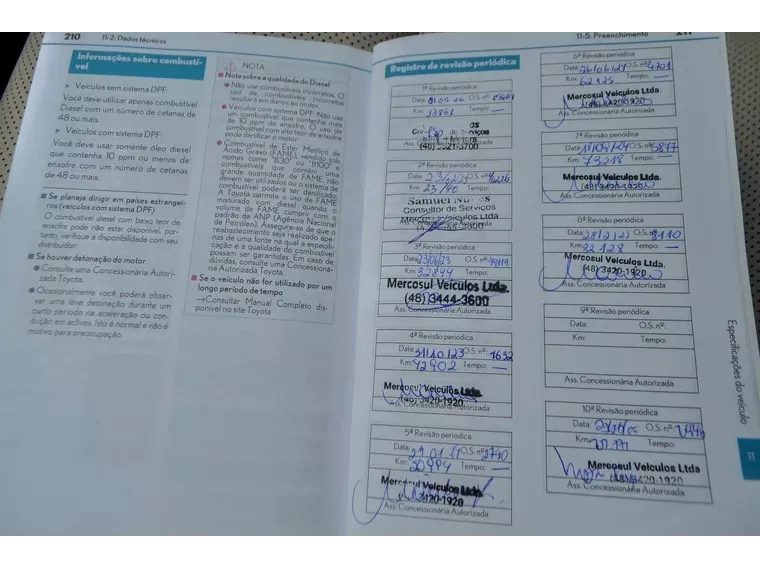 210
11-2. Dados técnicos
Informações sobre combustí-
vel
▶ Veículos sem sistema DPF:
Você deve utilizar apenas combustível
Diesel com um número de cetanas de
48 ou mais.
▶ Veículos com sistema DPF:
Você deve usar somente óleo diesel
que contenha 10 ppm ou menos de
enxofre com um número de cetanas
de 48 ou mais.
■ Se planeja dirigir em países estrangei-
ros (veículos com sistema DPF)
O combustível diesel com baixo teor de
enxofre pode não estar disponível, por-
tanto, verifique a disponibilidade com seu
distribuidor.
■ Se houver detonação do motor
● Consulte uma Concessionária Autori-
zada Toyota.
● Ocasionalmente você poderá obser-
var uma leve detonação durante um
curto período na aceleração ou con-
dução em aclives. Isto é normal e não é
motivo para preocupação.
⚠ NOTA
■ Nota sobre a qualidade do Diesel
● Não use combustíveis incorretos. O
uso de combustíveis incorretos
resultará em danos ao motor.
● Veículos com sistema DPF: Não use
um combustível que contenha mais
de 10 ppm de enxofre. O uso de
combustível com alto teor de enxofre
pode danificar o motor.
● Combustível de Éster Metílico de
Ácido Graxo (FAME) vendido sob
nomes como "B30" ou "B100" e
combustíveis que contêm uma
grande quantidade de FAME não
devem ser utilizados ou o sistema de
combustível poderá ser danificado.
A Toyota permite o uso de FAME
misturado com diesel quando o
volume de FAME cumprir com o
padrão da ANP (Agência Nacional
de Petróleo). Assegure-se de que o
reabastecimento seja realizado ape-
nas de uma fonte na qual a especifi-
cação e a qualidade do combustível
possam ser garantidas. Em caso de
dúvidas, consulte uma Concessioná-
ria Autorizada Toyota.
■ Se o veículo não for utilizado por um
longo período de tempo
→Consultar Manual Completo dis-
ponível no site Toyota
11-5. Preenchimento
Registro de revisão periódica
1ª Revisão periódica
Data: O.S. nº:
Km: 13861 Tempo:
de Serviços
2ª Revisão periódica
Data: O.S. nº:
Km: Tempo:
Samuel
Consultor de Serviços
Mercosul Veículos Ltda
3ª Revisão periódica
Data: 23/06/23 O.S. nº:
Km: 32844 Tempo:
Mercosul Veículos Ltda.
(48) 3444-3600
Ass. Concessionária Autorizada
4ª Revisão periódica
Data: 31/10/23 O.S. nº: 1632
Km: 42902 Tempo: —
Mercosul Veículos Ltda.
(48) 3420-1920
Ass. Concessionária Autorizada
5ª Revisão periódica
Data: O.S. nº: 2710
Km: 50994 Tempo: —
Mercosul Veículos Ltda.
3420-1920
Ass. Concessionária Autorizada
6ª Revisão periódica
Data: 26/06/24 O.S. nº: 4701
Km: Tempo: —
Mercosul Veículos Ltda
3420-1920
Ass. Concessionária Autorizada
7ª Revisão periódica
Data: O.S. nº: 5877
Km: 73218 Tempo: —
Mercosul Veículos Ltda.
(48) 3420-1920
Ass. Concessionária Autorizada
8ª Revisão periódica
Data: O.S. nº:
Km: Tempo: —
Mercosul Veículos Ltda.
(48) 3420-1920
Ass. Concessionária Autorizada
9ª Revisão periódica
Data: O.S. nº:
Km: Tempo:
Ass. Concessionária Autorizada
10ª Revisão periódica
Data: O.S. nº:
Km: Tempo: —
Mercosul Veículos Ltda
(48) 3420-1920
Ass. Concessionária Autorizada
Especificações do veículo
11